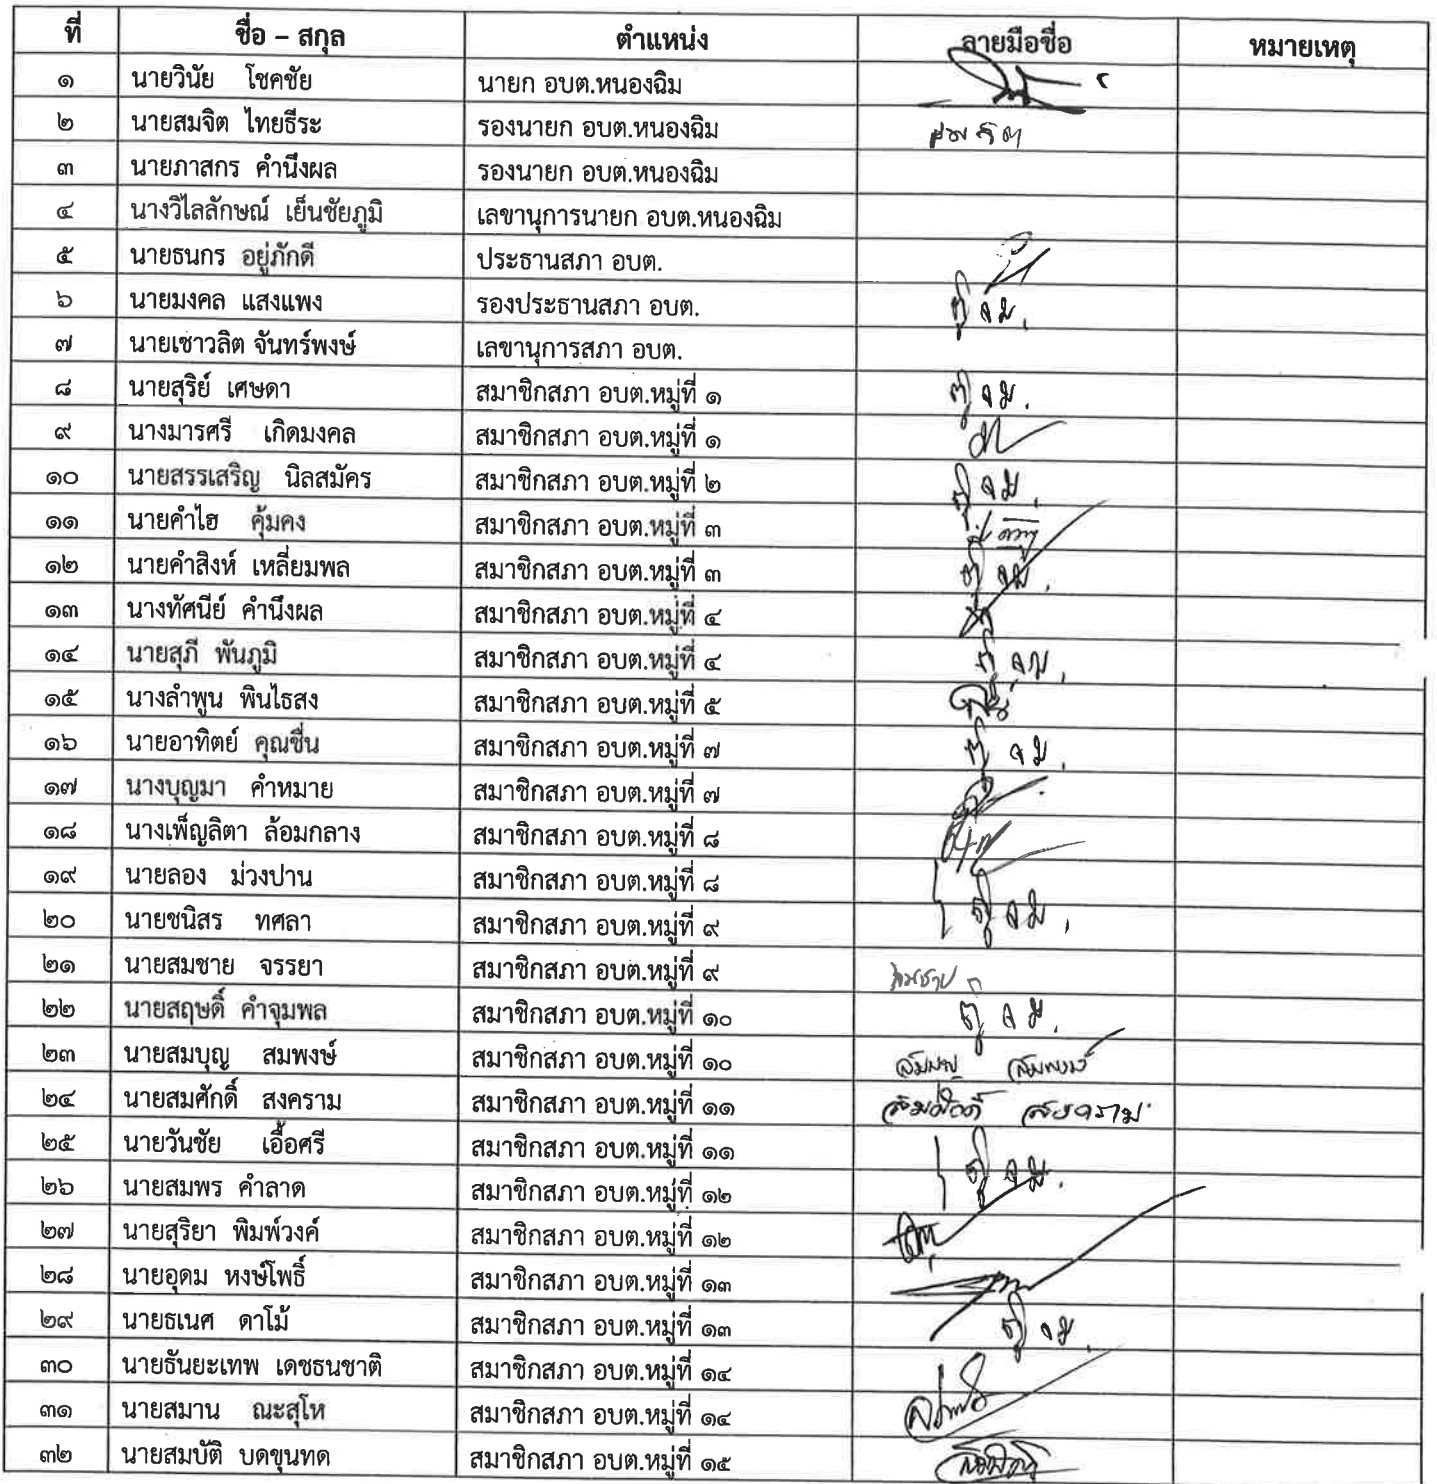 ที่ ชื่อ – สกุล ตำแหน่ง ลายมือชื่อ หมายเหตุ
๑ นายวินัย โชคชัย นายก อบต.หนองฉิม
๒ นายสมจิต ไทยธีระ รองนายก อบต.หนองฉิม สมจิต
๓ นายภาสกร คำนึงผล รองนายก อบต.หนองฉิม
๔ นางวิไลลักษณ์ เย็นชัยภูมิ เลขานุการนายก อบต.หนองฉิม
๕ นายธนกร อยู่ภักดี ประธานสภา อบต.
๖ นายมงคล แสงแพง รองประธานสภา อบต.
๗ นายเชาวลิต จันทร์พงษ์ เลขานุการสภา อบต.
๘ นายสุริย์ เศษดา สมาชิกสภา อบต.หมู่ที่ ๑
๙ นางมารศรี เกิดมงคล สมาชิกสภา อบต.หมู่ที่ ๑
๑๐ นายสรรเสริญ นิลสมัคร สมาชิกสภา อบต.หมู่ที่ ๒
๑๑ นายคำไฮ คุ้มคง สมาชิกสภา อบต.หมู่ที่ ๓
๑๒ นายคำสิงห์ เหลี่ยมพล สมาชิกสภา อบต.หมู่ที่ ๓
๑๓ นางทัศนีย์ คำนึงผล สมาชิกสภา อบต.หมู่ที่ ๔
๑๔ นายสุภี พันภูมิ สมาชิกสภา อบต.หมู่ที่ ๔
๑๕ นางลำพูน พินไธสง สมาชิกสภา อบต.หมู่ที่ ๕
๑๖ นายอาทิตย์ คุณชื่น สมาชิกสภา อบต.หมู่ที่ ๗
๑๗ นางบุญมา คำหมาย สมาชิกสภา อบต.หมู่ที่ ๗
๑๘ นางเพ็ญลิตา ล้อมกลาง สมาชิกสภา อบต.หมู่ที่ ๘
๑๙ นายลอง ม่วงปาน สมาชิกสภา อบต.หมู่ที่ ๘
๒๐ นายชนิสร ทศลา สมาชิกสภา อบต.หมู่ที่ ๙
๒๑ นายสมชาย จรรยา สมาชิกสภา อบต.หมู่ที่ ๙ สมชาย
๒๒ นายสฤษดิ์ คำจุมพล สมาชิกสภา อบต.หมู่ที่ ๑๐
๒๓ นายสมบุญ สมพงษ์ สมาชิกสภา อบต.หมู่ที่ ๑๐ สมบุญ สมพงษ์
๒๔ นายสมศักดิ์ สงคราม สมาชิกสภา อบต.หมู่ที่ ๑๑ สมศักดิ์ สงคราม
๒๕ นายวันชัย เอื้อศรี สมาชิกสภา อบต.หมู่ที่ ๑๑
๒๖ นายสมพร คำลาด สมาชิกสภา อบต.หมู่ที่ ๑๒
๒๗ นายสุริยา พิมพ์วงค์ สมาชิกสภา อบต.หมู่ที่ ๑๒
๒๘ นายอุดม หงษ์โพธิ์ สมาชิกสภา อบต.หมู่ที่ ๑๓
๒๙ นายธเนศ ดาโม้ สมาชิกสภา อบต.หมู่ที่ ๑๓
๓๐ นายธันยะเทพ เดชธนชาติ สมาชิกสภา อบต.หมู่ที่ ๑๔
๓๑ นายสมาน ณะสุโห สมาชิกสภา อบต.หมู่ที่ ๑๔
๓๒ นายสมบัติ บดขุนทด สมาชิกสภา อบต.หมู่ที่ ๑๕